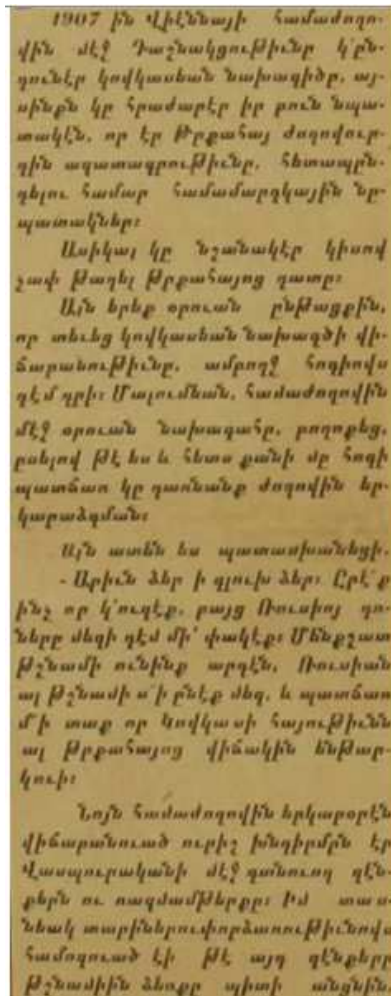 1907 ին Վիէննայի համաժողո-
վին մէջ Դաշնակցութիւնը կ՚ըն-
դունէր կովկասեան նախագիծը, այ-
սինքն կը հրաժարէր իր բուն նպա-
տակէն, որ էր Թրքահայ ժողովուր-
դին ազատագրութիւնը, հետապըն-
դելու համար համամարդկային նը-
պատակներ։
Ասիկայ կը նշանակէր կիսով
չափ թաղել Թրքահայոց դատը։
Այն երեք օրուան ընթացքին,
որ տեւեց կովկասեան նախագծի վի-
ճարանութիւնը, ամբողջ հոգիովս
դէմ դրի։ Մալումեան, համաժողովին
մէջ օրուան նախագահը, բողոքեց,
ըսելով թէ ես և հետս քանի մը հոգի
պատճառ կը դառնանք ժողովին եր-
կարաձգման։
Այն ատեն ես պատասխանեցի.
- Արիւն ձեր ի գլուխ ձեր։ Ըրէ՛ք
ինչ որ կ՚ուզէք, բայց Ռուսիոյ դռ-
ները մեզի դէմ մի՛ փակէք։ Մենք շատ
թշնամի ունինք արդէն, Ռուսիան
ալ թշնամի մ՛ի ընէք մեզ, և պատճառ
մ՛ի տաք որ Կովկասի հայութիւնն
ալ Թրքահայոց վիճակին ենթար-
կուի։
Նոյն համաժողովին երկարօրէն
վիճարանուած ուրիշ խնդիրմըն էր
Վասպուրականի մէջ գտնուող զէն-
քերն ու ռազմամթերքը։ Իմ տաս-
նեակ տարիներու փորձառութիւնովս
համոզուած էի թէ այդ զէնքերը
թշնամիին ձեռքը պիտի անցնին